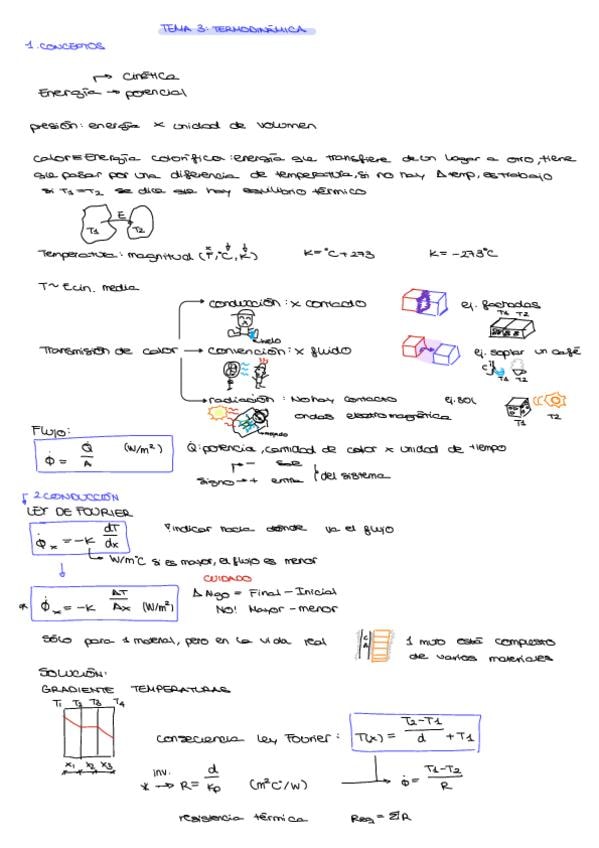 TEMA 3: TERMODINÁMICA
1. CONCEPTOS
cinética
Energía → potencial
presión: energía x unidad de volumen
calor ≡ Energía calorífica: energía que transfiere de un lugar a otro, tiene
que pasar por una diferencia de temperatura, si no hay Δtemp, es trabajo
si T1 = T2 se dice que hay equilibrio térmico
T1 E T2
Temperatura: magnitud (°F, °C, K) K = °C + 273 K = -273°C
T ~ Ecin. media
conducción: x contacto ej. fachadas
T1 T2
hielo
Transmisión de calor → convención: x fluido ej. soplar un café
T1 T2
radiación: No hay contacto ej. sol
ondas electromagnética
T1 T2
Flujo:
Φ̇ = Q̇/A (W/m²) Q̇: potencia, cantidad de calor x unidad de tiempo
- sale
signo → + entra } del sistema
2 CONDUCCIÓN
LEY DE FOURIER
Φ̇x = -K dT/dx indicar hacia dónde va el flujo
W/m°C si es mayor, el flujo es menor
CUIDADO
* Φ̇x = -K ΔT/Δx (W/m²) Δ Algo = Final - Inicial
NO! Mayor - menor
Sólo para 1 material, pero en la vida real 1 muro está compuesto
de varios materiales
SOLUCIÓN:
GRADIENTE TEMPERATURAS
T1 T2 T3 T4
x1 x2 x3
consecuencia Ley Fourier: T(x) = (T2-T1)/d + T1
inv.
* → R = d/Kp (m²C°/W) → Φ̇ = (T1-T2)/R
resistencia térmica Req = ΣR